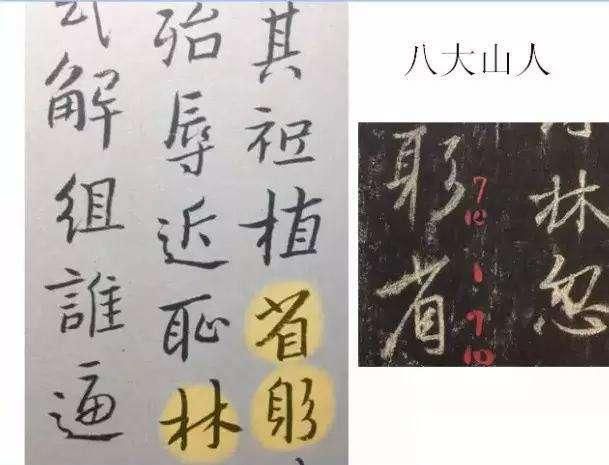 其祗植省躬
殆辱近恥林
解組誰逼
八大山人
林忽
躬省